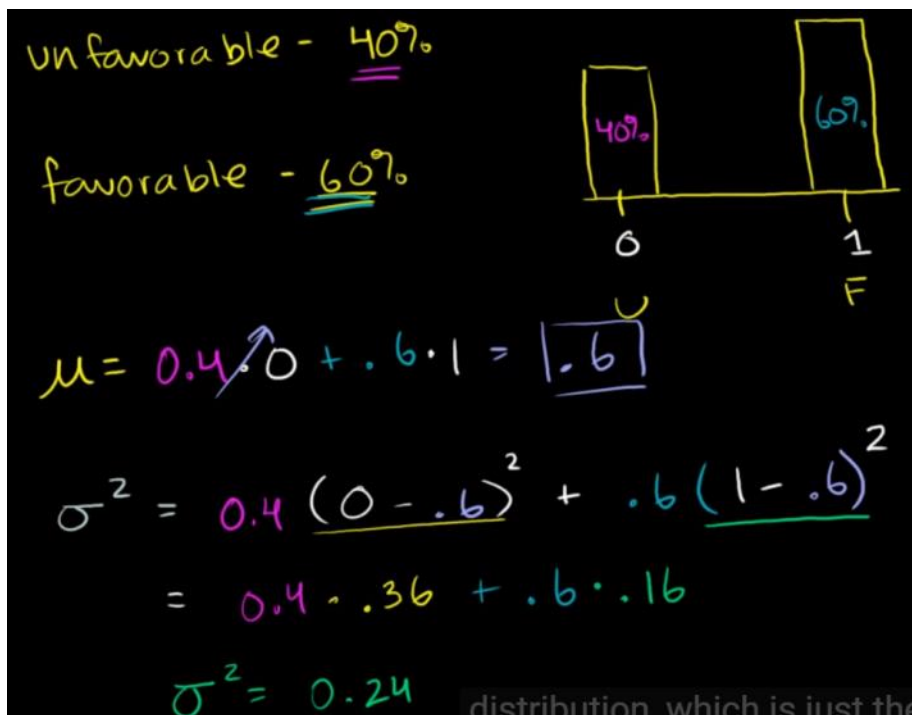 unfavorable - 40%
favorable - 60%
40%
60%
0
1
U
F
μ = 0.4·0 + .6·1 = .6
σ² = 0.4 (0 - .6)² + .6 (1 - .6)²
= 0.4 · .36 + .6 · .16
σ² = 0.24
distribution, which is just the